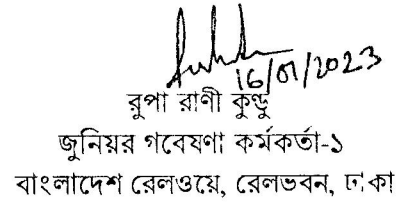 16/01/2023
রুপা রাণী কুন্ডু
জুনিয়র গবেষণা কর্মকর্তা-১
বাংলাদেশ রেলওয়ে, রেলভবন, ঢাকা